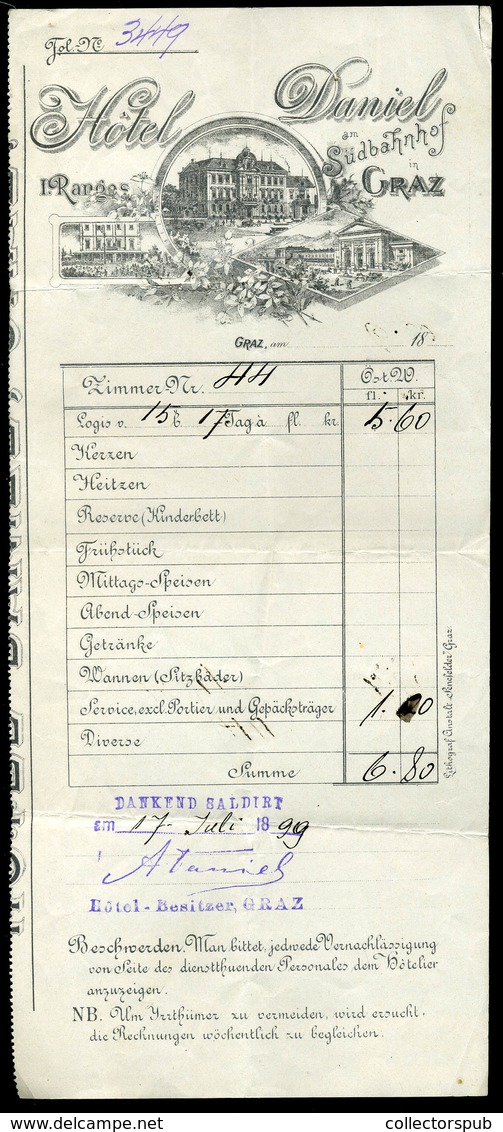 Fol. No 3449
Hôtel Daniel
I. Ranges
am
Südbahnhof
in
GRAZ
GRAZ, am 18
Zimmer Nr. 44
Öst. W.
fl. kr.
Logis v. 15 t. 17 Tag à fl. kr. 5.60
Kerzen
Heitzen
Reserve (Kinderbett)
Frühstück
Mittags-Speisen
Abend-Speisen
Getränke
Wannen (Sitzbäder)
Service, excl. Portier und Gepäcksträger 1.20
Diverse
Summe 6.80
Lithograf. Anstalt "Senefelder" Graz.
DANKEND SALDIRT
am 17. Juli 1899
A Daniel
Hôtel-Besitzer, GRAZ
Beschwerden. Man bittet, jedwede Vernachlässigung
von Seite des dienstthuenden Personales dem Hôtelier
anzuzeigen.
NB. Um Irrthümer zu vermeiden, wird ersucht,
die Rechnungen wöchentlich zu begleichen.
delcampe.net
collectorspub